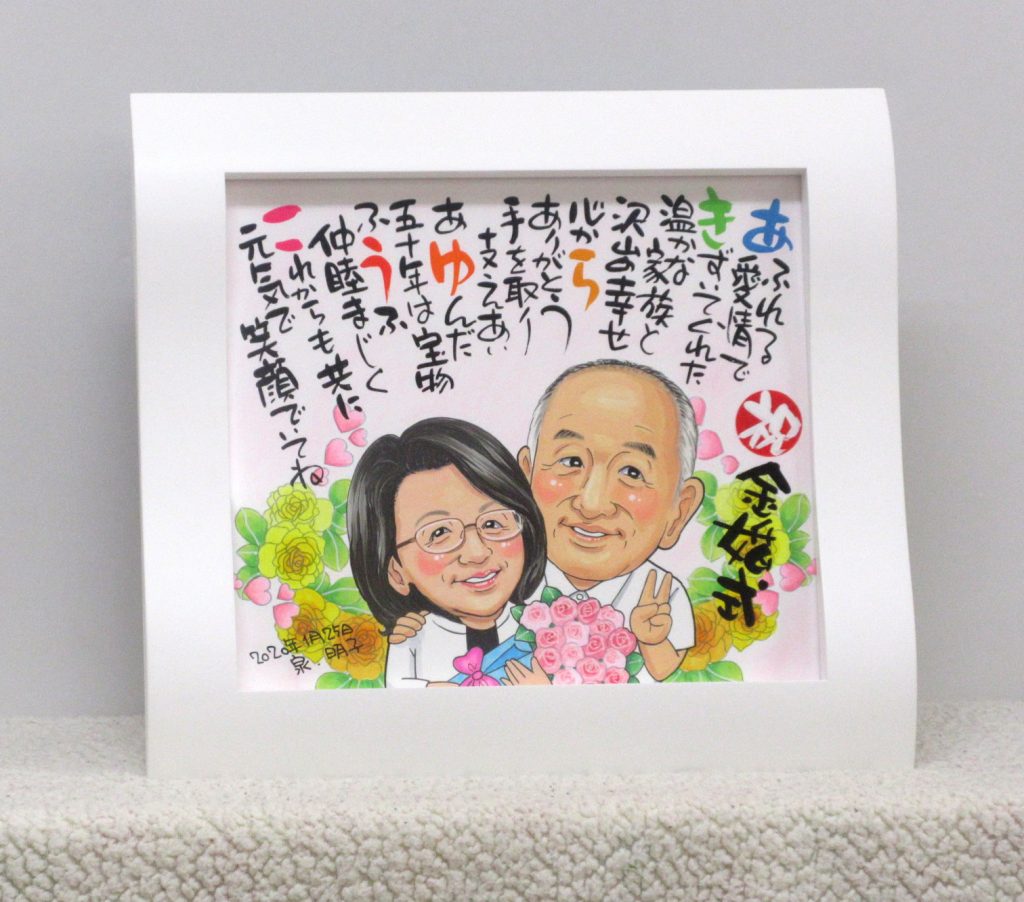 あふれる
愛情で
きずいてくれた
温かな
家族と
沢山の幸せ
心から
ありがとう
手を取り
支えあい
あゆんだ
五十年は宝物
ふうふ
仲睦まじく
これからも共に
元気で笑顔でいてね
祝
金婚式
2020年1月25日
泉・明子